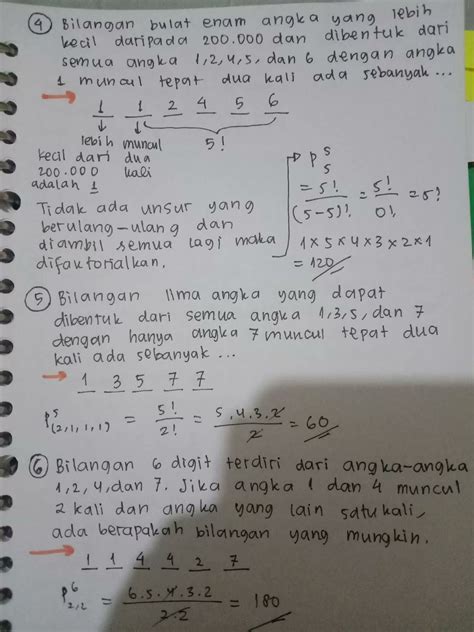 ④ Bilangan bulat enam angka yang lebih
kecil daripada 200.000 dan dibentuk dari
semua angka 1,2,4,5, dan 6 dengan angka
1 muncul tepat dua kali ada sebanyak ...
→ 1 1 2 4 5 6
↓ ↓ 5!
lebih muncul
kecil dari dua
200.000 kali
adalah 1
Tidak ada unsur yang
berulang-ulang dan
diambil semua lagi maka
difaktorialkan.
→ P⁵₅
= 5!/(5-5)! = 5!/0! = 5!
1 x 5 x 4 x 3 x 2 x 1
= 120
⑤ Bilangan lima angka yang dapat
dibentuk dari semua angka 1,3,5, dan 7
dengan hanya angka 7 muncul tepat dua
kali ada sebanyak ...
→ 1 3 5 7 7
P⁵(2,1,1,1) = 5!/2! = 5.4.3.2/2 = 60
⑥ Bilangan 6 digit terdiri dari angka-angka
1,2,4, dan 7. Jika angka 1 dan 4 muncul
2 kali dan angka yang lain satu kali,
ada berapakah bilangan yang mungkin.
→ 1 1 4 4 2 7
P⁶2,2 = 6.5.4.3.2/2.2 = 180